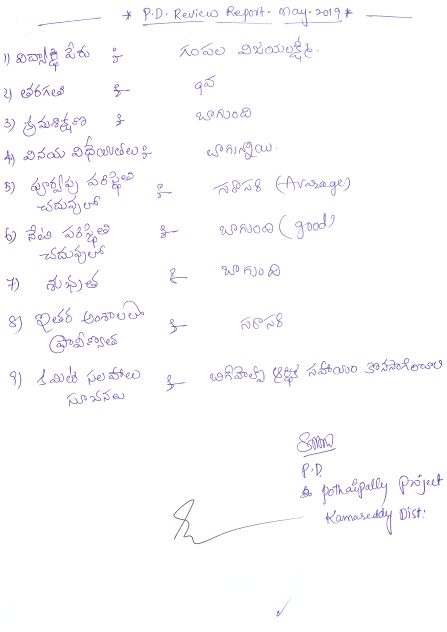 * P.D. Review Report. May. 2019 *
1) విద్యార్థి పేరు :- గంపల విజయలక్ష్మి.
2) తరగతి :- 9వ
3) క్రమశిక్షణ :- బాగుంది
4) వినయ విధేయతలు :- బాగున్నాయి.
5) పూర్వపు పరిస్థితి :- సరాసరి (Avarage)
చదువులో
6) నేటి పరిస్థితి :- బాగుంది (good)
చదువులో
7) శుభ్రత :- బాగుంది
8) ఇతర అంశాలలో :- సరాసరి
ప్రావీణ్యత
9) కమిటి సలహాలు :- బిగ్‌హెల్ప్ ఆర్థిక సహాయం కొనసాగించాలి
సూచనలు
P.D.
Pothaipally Project
Kamareddy Dist.